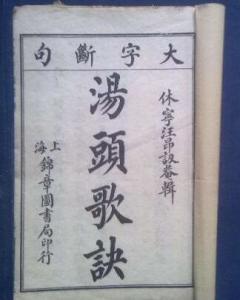 大字斷句
休寧汪昂訒菴輯
湯頭歌訣
上海錦章圖書局印行